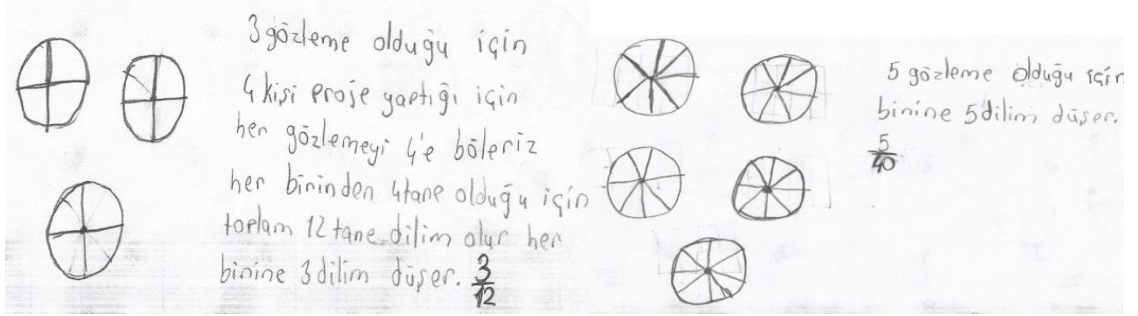 3 gözleme olduğu için
4 kişi proje yaptığı için
her gözlemeyi 4'e böleriz
her birinden 4tane olduğu için
toplam 12 tane dilim olur her
birine 3 dilim düşer. 3/12
5 gözleme olduğu için
birine 5 dilim düşer.
5/40